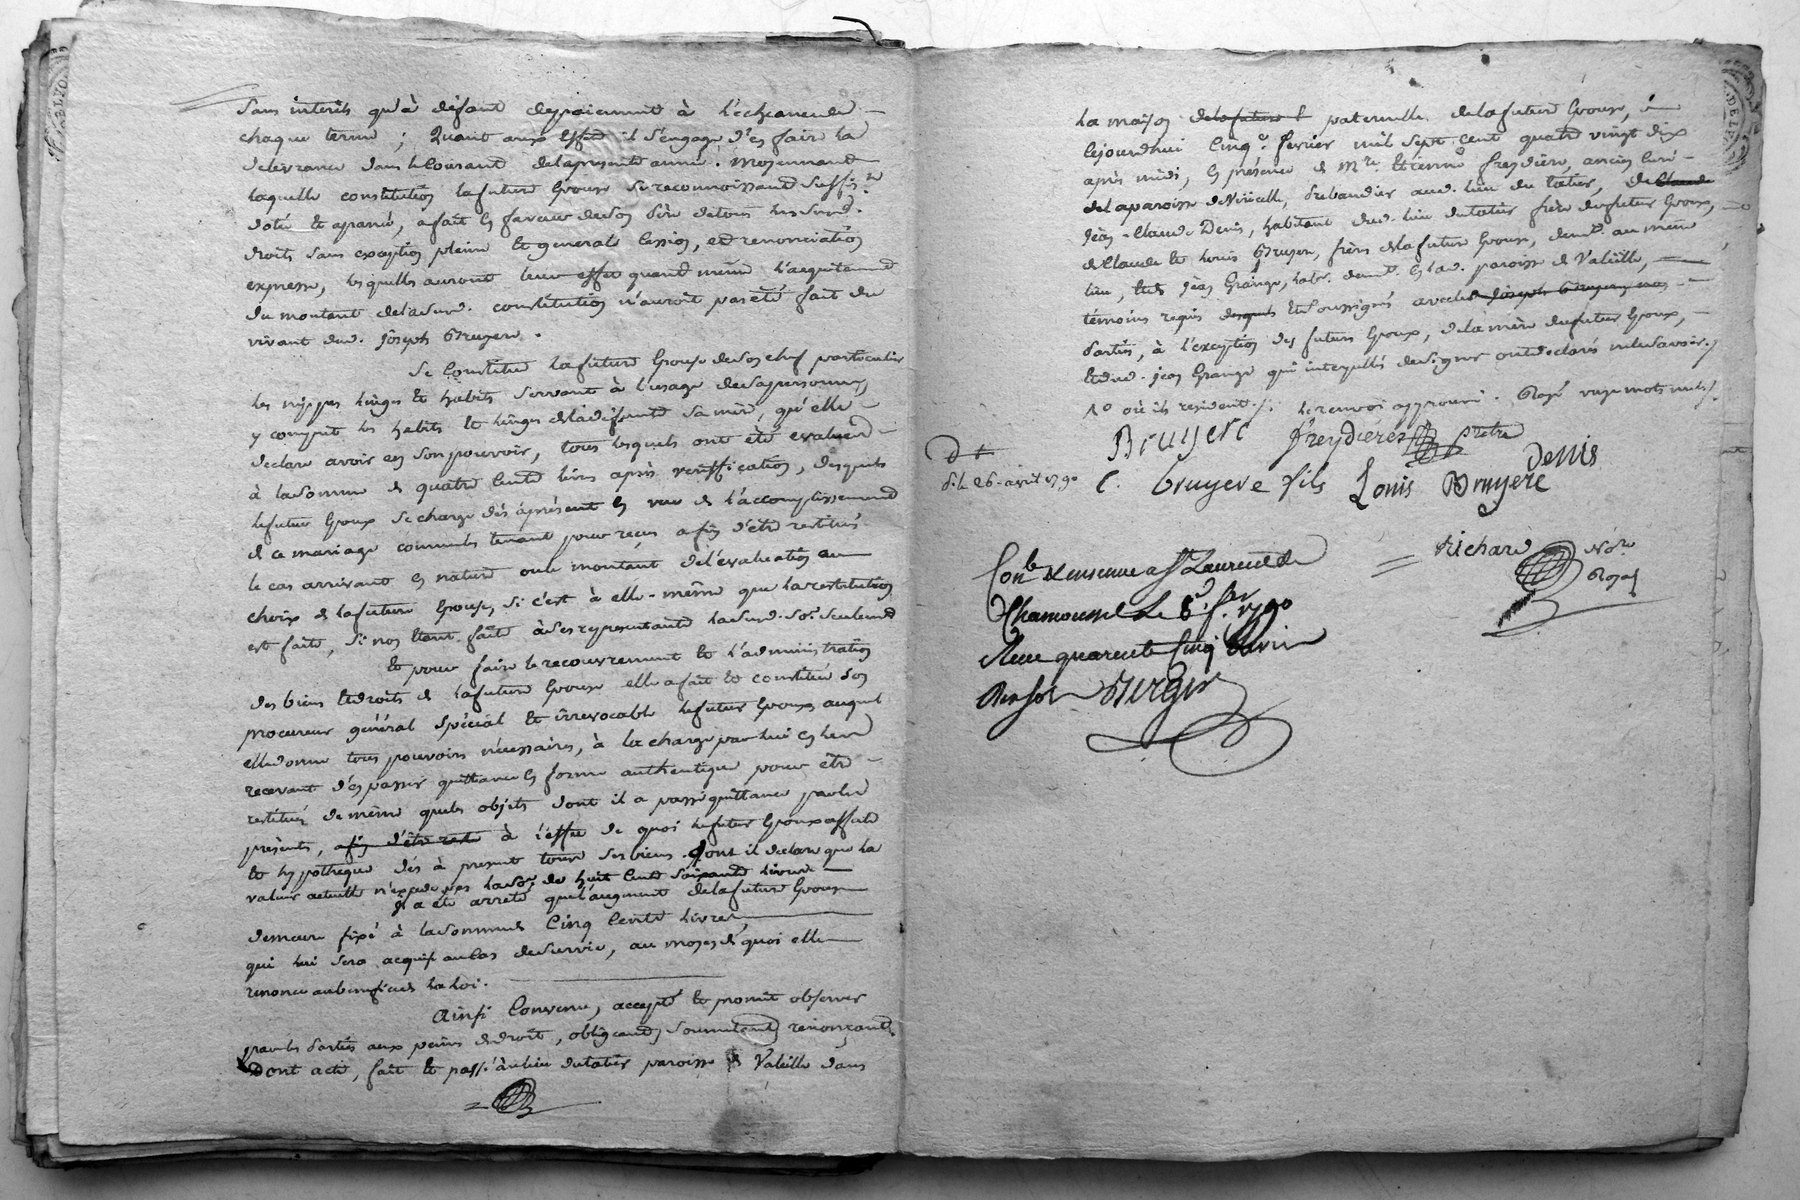 sans interêts qu'à défaut depaiement à l'écheance de
chaque terme ; Quant aux effets il s'engage d'en faire la
delivrance dans le Courant delapresente année. Moyennant
laquelle constitution lafuture Epouse se reconnoissant suffis.te
doté et apané, a fait en faveur deson Père detous lessusd.
droits sans exception pleine et generale Cession, et renonciation
expresse, lesquelles auront leur effet quand même l'acquitement
du montant deladite. constitution n'auroit pas été fait du
vivant dud. Joseph Bruyere.
Se Constitue lafuture Epouse deson chef particulier
les nippes linges et habits servant à l'usage desapersonne,
y compris les habits et linges deladéfunte sa mère, qu'elle
declare avoir en son pouvoir, tous lesquels ont été evalués
à lasomme de quatre Cents livres après verification, desquels
lefutur Epoux se charge dès àprésent en vue de l'accomplissement
de ce mariage comme les tenant pour reçus afin d'être restitués
le cas arrivant en nature ou le montant del'évaluation au
choix de lafuture Epouse, si c'est à elle-même que larestitution
est faite, si non étant faite àses representants lasusd. so.e seulement
Et pour faire le recouvrement et l'administration
des biens et droits de lafuture Epouse elle a fait et constitué son
procureur général spécial et irrevocable lefutur Epoux auquel
elle donne tous pouvoirs nécessaires, à la charge par lui en les
recevant d'en passer quittance en forme authentique pour être
restitués de même que les objets dont il a passé quittance par les
présents, afin d'être resti à l'effet de quoi lefutur Epoux affecte
et hypothèque dès à present tous ses biens. dont il declare que la
valeur actuelle n'excede pas la so.e de huit Cents soixante livres
Il a été arreté quel'augment delafuture Epouse
demeure fixé à lasomme de Cinq Cents livres
qui lui sera acquis au Cas desurvie, au moyen de quoi elle
renonce aubenefice de la loi.
Ainsi Convenu, accepté et promit observer
parles Parties aux peines dedroit, obligeant, soumettant, renonçant.
Dont acte, fait et passé àulieu dutatier paroisse de Valeille dans
la maison delafuture E paternelle delafuture Epouse,
Cejourdhui Cinq.e fevrier mil sept cent quatre vingt dix
après midi, en présence de M.re Etienne freydière, ancien Curé
delaparoisse deViricelle, prebandier aud. lieu du tatier, de Claude
Jean-Claude Denis, habitant dud. lieu dutatier frère dufutur Epoux,
de Claude et Louis Bruyere, frères delafuture Epouse, dem.t au même
lieu, et de Jean Grange, lab.r demt. en lad. paroisse de Valeille,
témoins requis desquels Et soussignés avec les Joseph Bruyere
Parties, à l'exception des futurs Epoux, de la mère dufutur Epoux,
Et dud. jean Grange qui interpellés designer ontdeclarés nelesavoir.
1.º où ils resident . le renvoi approuvé . Rayé mots nuls.
Bruyere Freydières prêtre
Denis
C. bruyere fils Louis Bruyere
Richard No.re
Royal
Dt
d.le 26. avril 1790
Con.lé & ensinué a St Laurent de
Chamousset Le 8.e f.er 1790
Recu quarente Cinq Livres
Berger